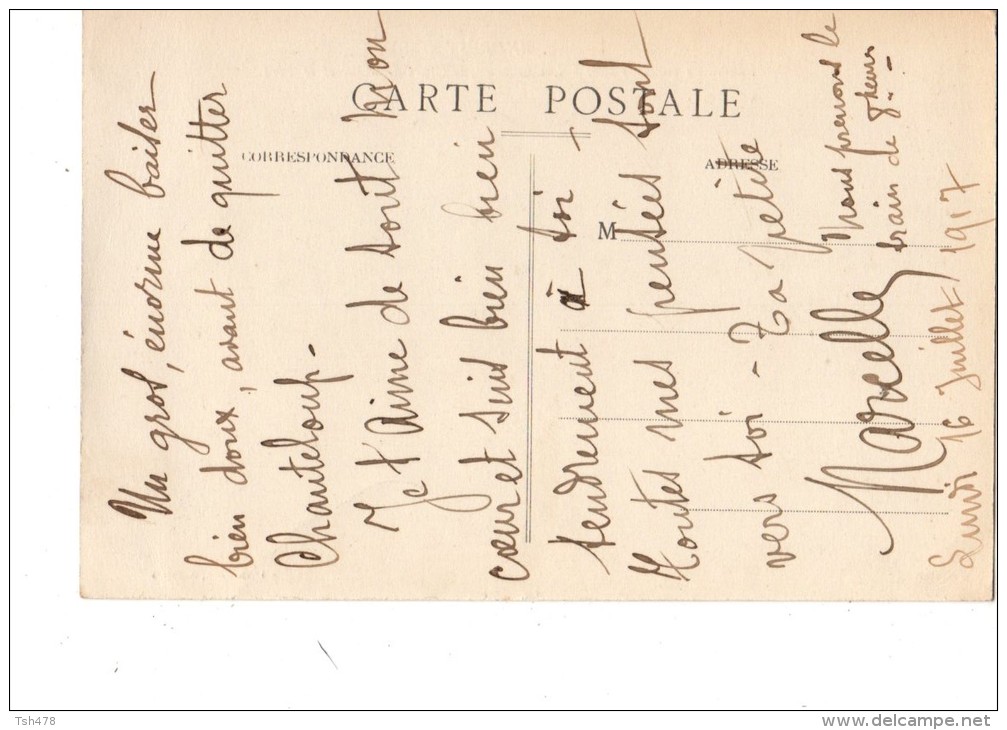 CARTE POSTALE
CORRESPONDANCE
ADRESSE
M
Un gros, énorme baiser
bien doux, avant de quitter
Chanteloup.
Je t'Aime de tout mon
cœur et suis bien bien
tendrement à toi -
Toutes mes pensées sont
vers toi - Ta petite
Marcelle
Nous prenons le
train de 8 heures -
Lundi 16 Juillet 1917
Tsh478
www.delcampe.net